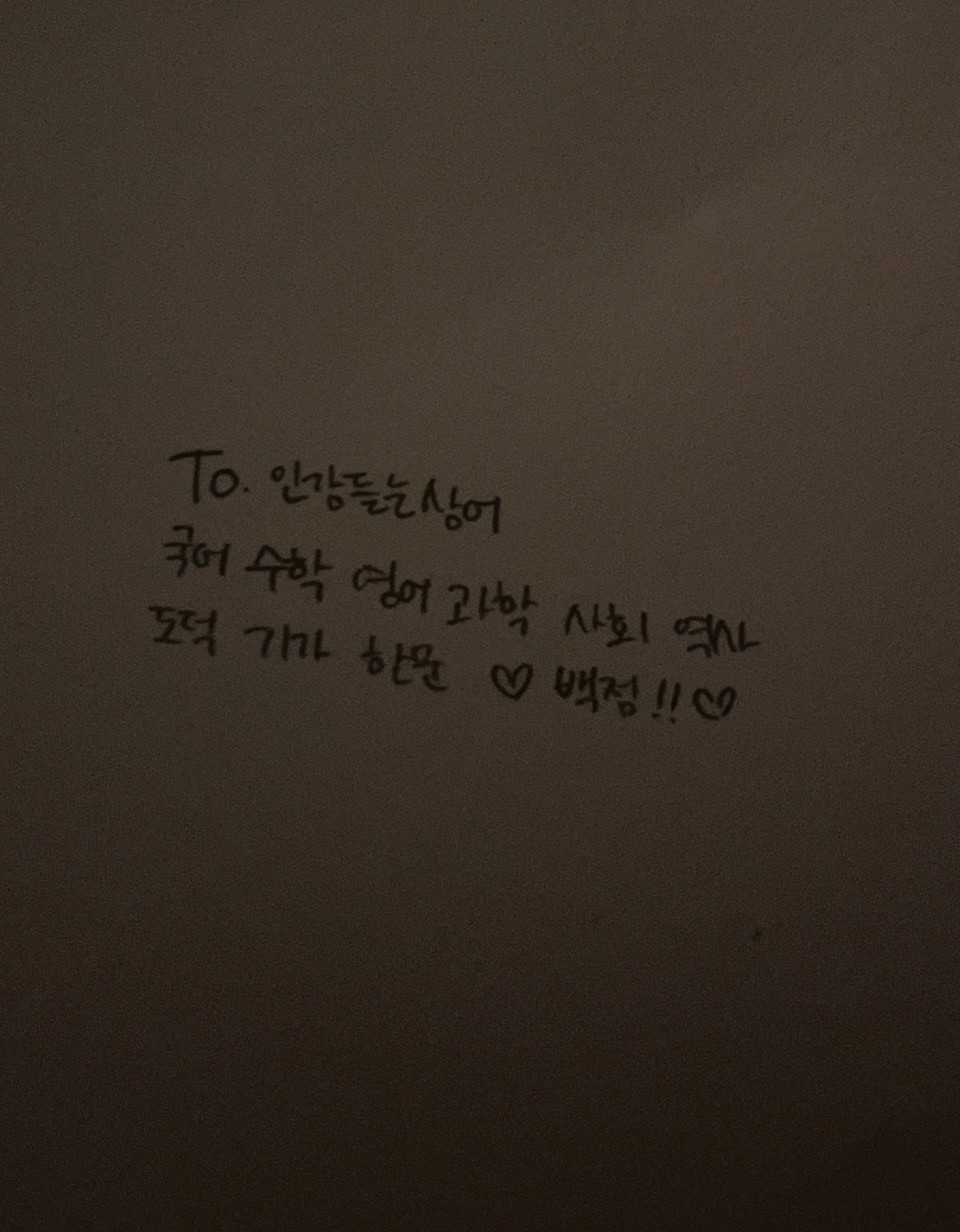 To. 인강듣는상어
국어 수학 영어 과학 사회 역사
도덕 기가 한문 ♡ 백점!!♡